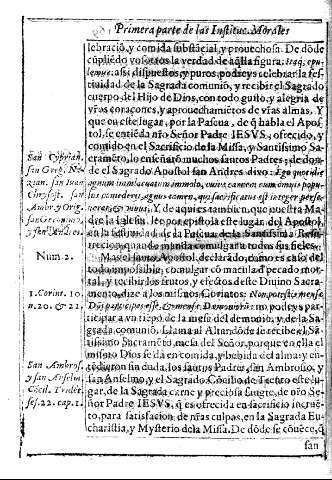 Primera parte de las Institut. Morales
lebració, y comida substácial, y prouechosa. De dõde
cũpliédo vosotros la verdad de aq̃lla figura: itaq; epu-
lemur: assi dispuestos, y puros, podreys celebrar la fes-
tiuidad de la Sagrada comunió, y recibir el Sagrado
cuerpo del Hijo de Dios, con todo gusto, y alegria de
vr̃as coraçones, y aprouechamiẽtos de vr̃as almas. Y
que en este lugar, por la Pascua, de q̃ habla el Apos-
tol, se entiẽda nr̃o Señor Padre IESVS, ofrecido, y
comido en el Sacrificio de la Missa, y Santissimo Sa-
cramẽto, lo enseñarõ muchos santos Padres; de don-
de el Sagrado Apostol san Andres dixo: Ego quotidie
agnum immaculatum immolo, cuius carnem cum omnis popu-
lus comederit, agnus tamen, qui sacrificatus est integer perse-
uerat, & viuus. Y de aqui es tambien, que nuestra Ma-
dre la Iglesia, lee por epistola este lugar del Apostol,
en la festiuidad de la Pascua, de la Santissima Resu-
rreccion, quando manda comulgar a todos sus fieles.
San Cyprian.
san Greg. Na-
zian. san Iuan
Chrysost. san
Ambr. y Orig.
san Geronimo,
y san Andres.
Num. 2.
Mas el santo Apostol, declarã, como es caso del
todo impossible, comulgar cõ macula d pecado mor-
tal, y recibir los frutos, y efectos deste Diuino Sacra-
mento, dize a los mismos Corintos: Non potestis mensæ
Dñi participes esse, & mensæ Dæmoniorũ: no podeys par-
ticipar a vn tiẽpo de la mesa del demonio, y de la Sa-
grada comunió. Llama al Altar, dõde se recibe el Sã-
tissimo Sacramẽto, mesa del Señor, porque en ella el
mismo Dios se da en comida, y bebida del alma: y en-
tẽdieron sin duda, los santos Padres, san Ambrosio, y
san Anselmo, y el Sagrado Cõcilio de Trẽto este lu-
gar, de la Sagrada carne y preciosa sangre, de nr̃o Se-
ñor Padre IESVS, q̃ es ofrecida en sacrificio incruẽ-
to, para satisfacion de nr̃as culpas, en la Sagrada Eu-
charistia, y Mysterio de la Missa. De dõde se cõuẽce, q̃
1. Corint. 10.
n. 20. & 21.
San Ambros.
y san Anselm.
Cõcil. Tridẽt.
ses. 22. cap. 1.
san